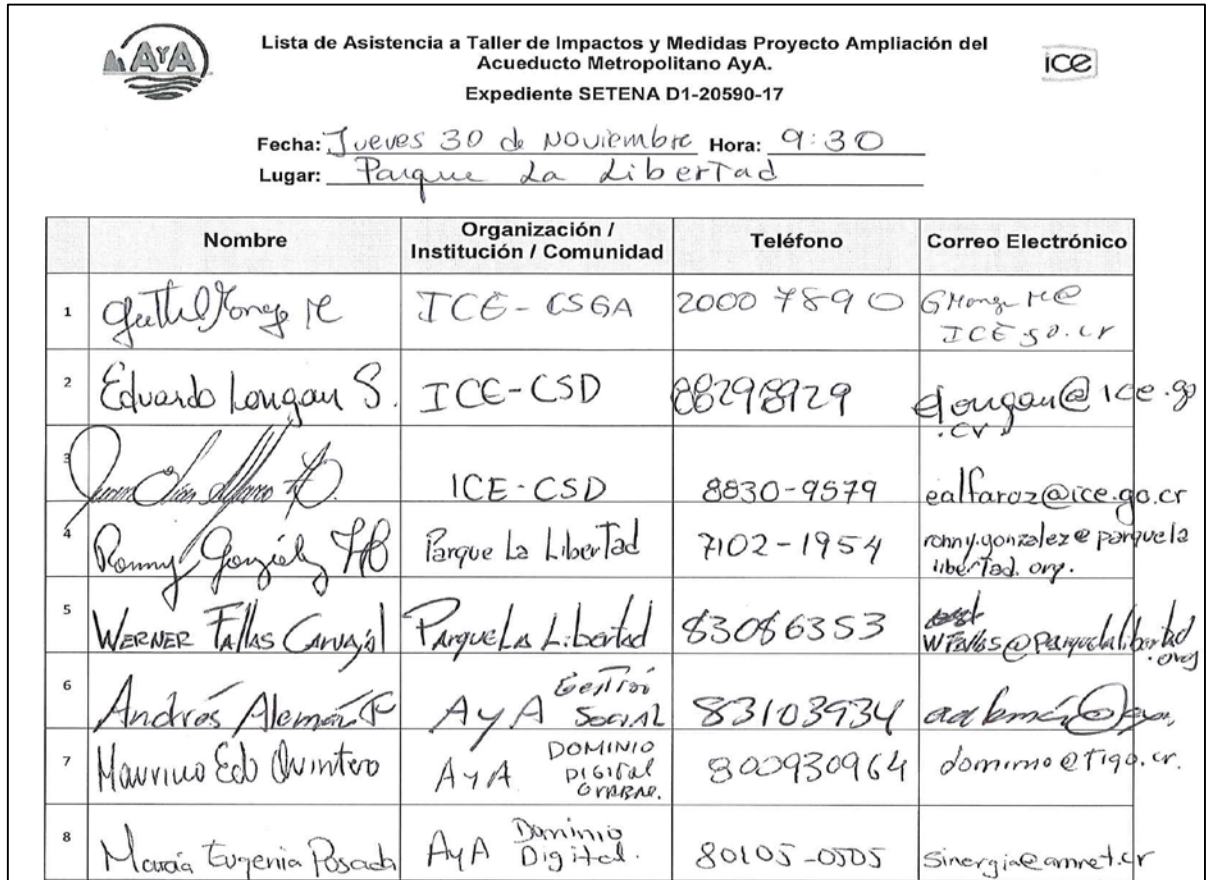 AyA
Lista de Asistencia a Taller de Impactos y Medidas Proyecto Ampliación del
Acueducto Metropolitano AyA.
ice
Expediente SETENA D1-20590-17
Fecha: Jueves 30 de Noviembre Hora: 9:30
Lugar: Parque La Libertad
Nombre Organización / Institución / Comunidad Teléfono Correo Electrónico
1 ICE-CSGA 2000 7890 GMongeM@
ICE.go.cr
2 Eduardo Longan S. ICE-CSD 88298929 elongan@ice.go
.cr
3 ICE-CSD 8830-9579 ealfaroz@ice.go.cr
4 Ronny Gonzalez Parque La Libertad 7102-1954 ronny.gonzalez@parquela
libertad.org.
5 WERNER Fallas Carvajal Parque La Libertad 83086353 WFallas@parquelalibertad
.org
6 Andrés Alemán AyA Gestión
SOCIAL 83103934
7 Mauricio Edo Quintero AyA DOMINIO
DIGITAL 800930964 dominio@tigo.cr.
8 María Eugenia Posada AyA Dominio
Digital. 80105-0505 sinergia@amnet.cr